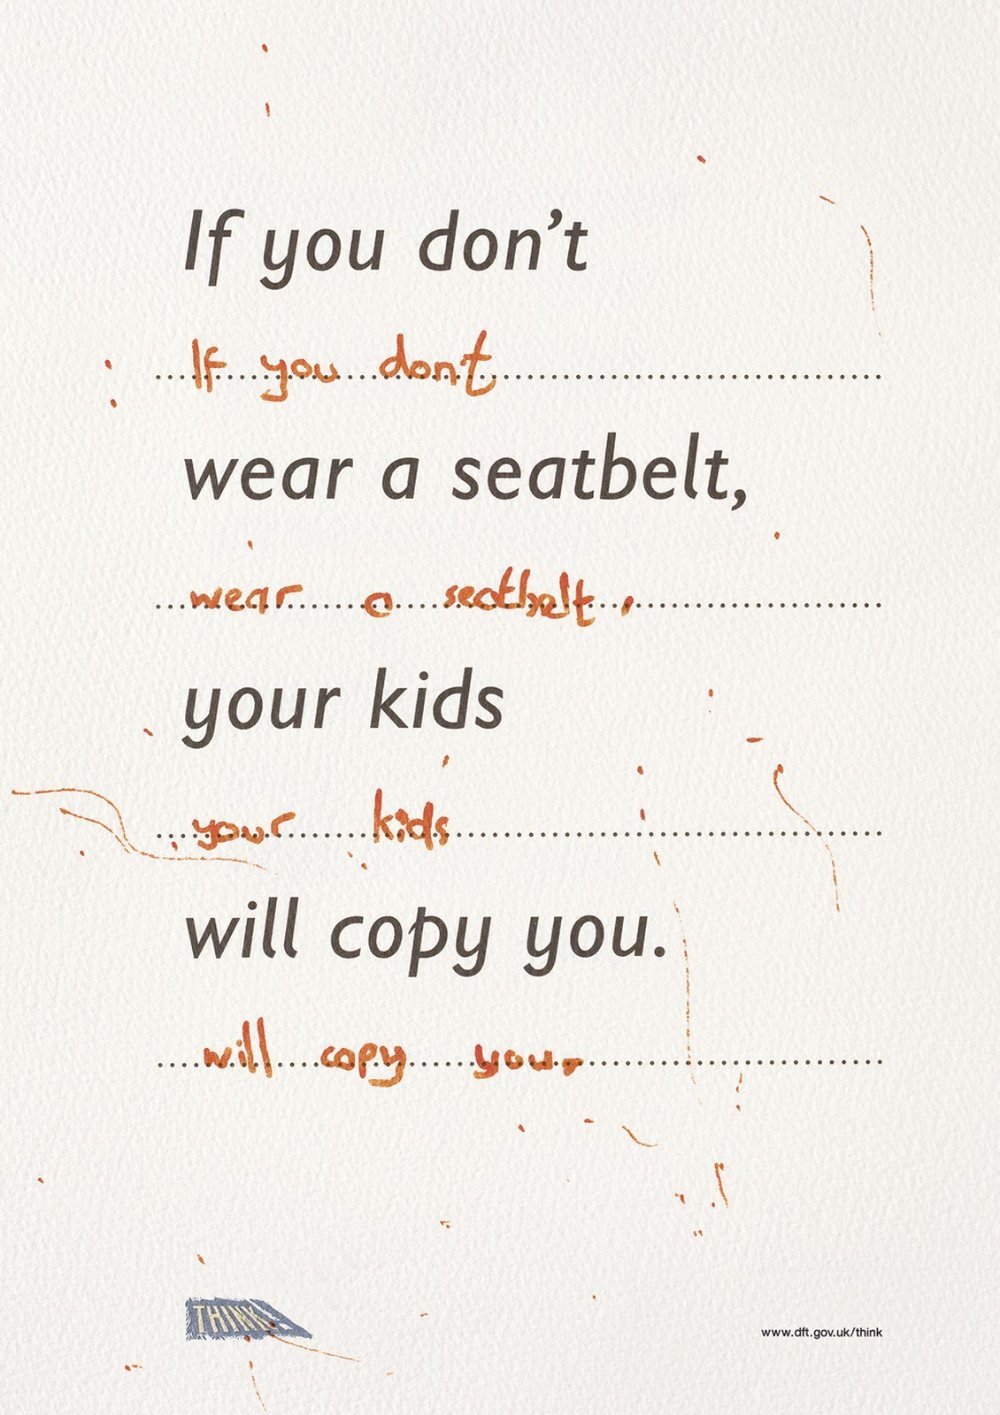 If you don’t
If you dont
wear a seatbelt,
wear a seatbelt,
your kids
your kids
will copy you.
will copy you.
THINK!
www.dft.gov.uk/think